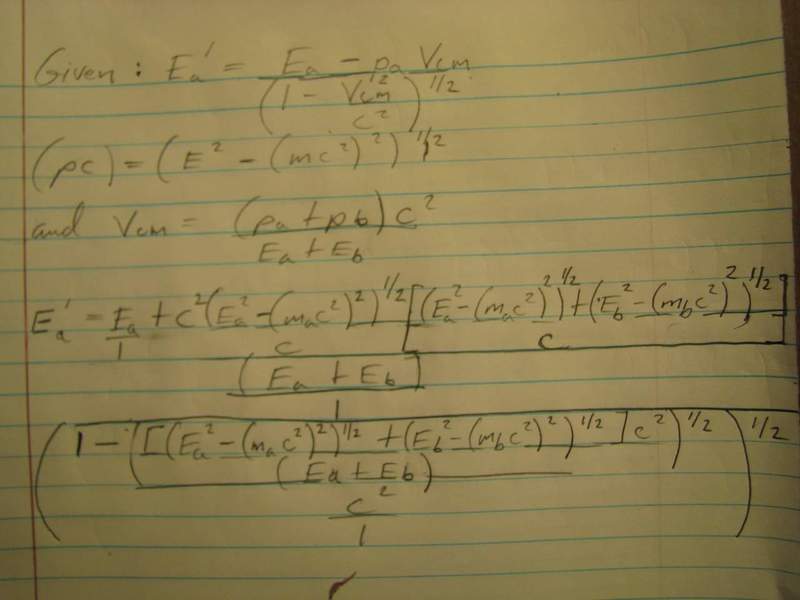 Given : Ea' = Ea - pa Vcm
(1 - Vcm² / c²)^1/2
(pc) = (E² - (mc²)²)^1/2
and Vcm = (pa + pb) c²
Ea + Eb
Ea' = Ea + c² (Ea² - (ma c²)²)^1/2 [(Ea² - (ma c²)²)^1/2 + (Eb² - (mb c²)²)^1/2]
1 c c
(Ea + Eb)
1
(1 - ([(Ea² - (ma c²)²)^1/2 + (Eb² - (mb c²)²)^1/2] c²)^1/2)^1/2
(Ea + Eb)
c²
1